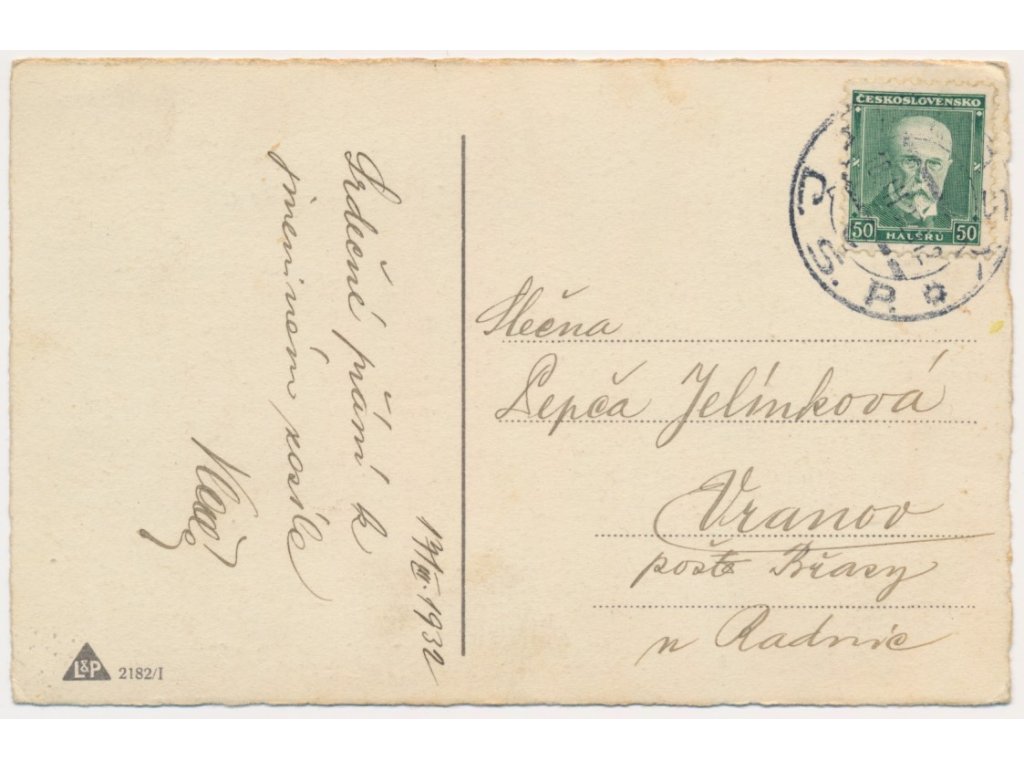 Srdečné přání k
jmeninám zasílá
17/III. 1932
L&P
2182/I
ČESKOSLOVENSKO
50 HALÉŘŮ 50
S. P.
Slečna
Pepča Jelínková
Vranov
pošt Břasy
u Radnic